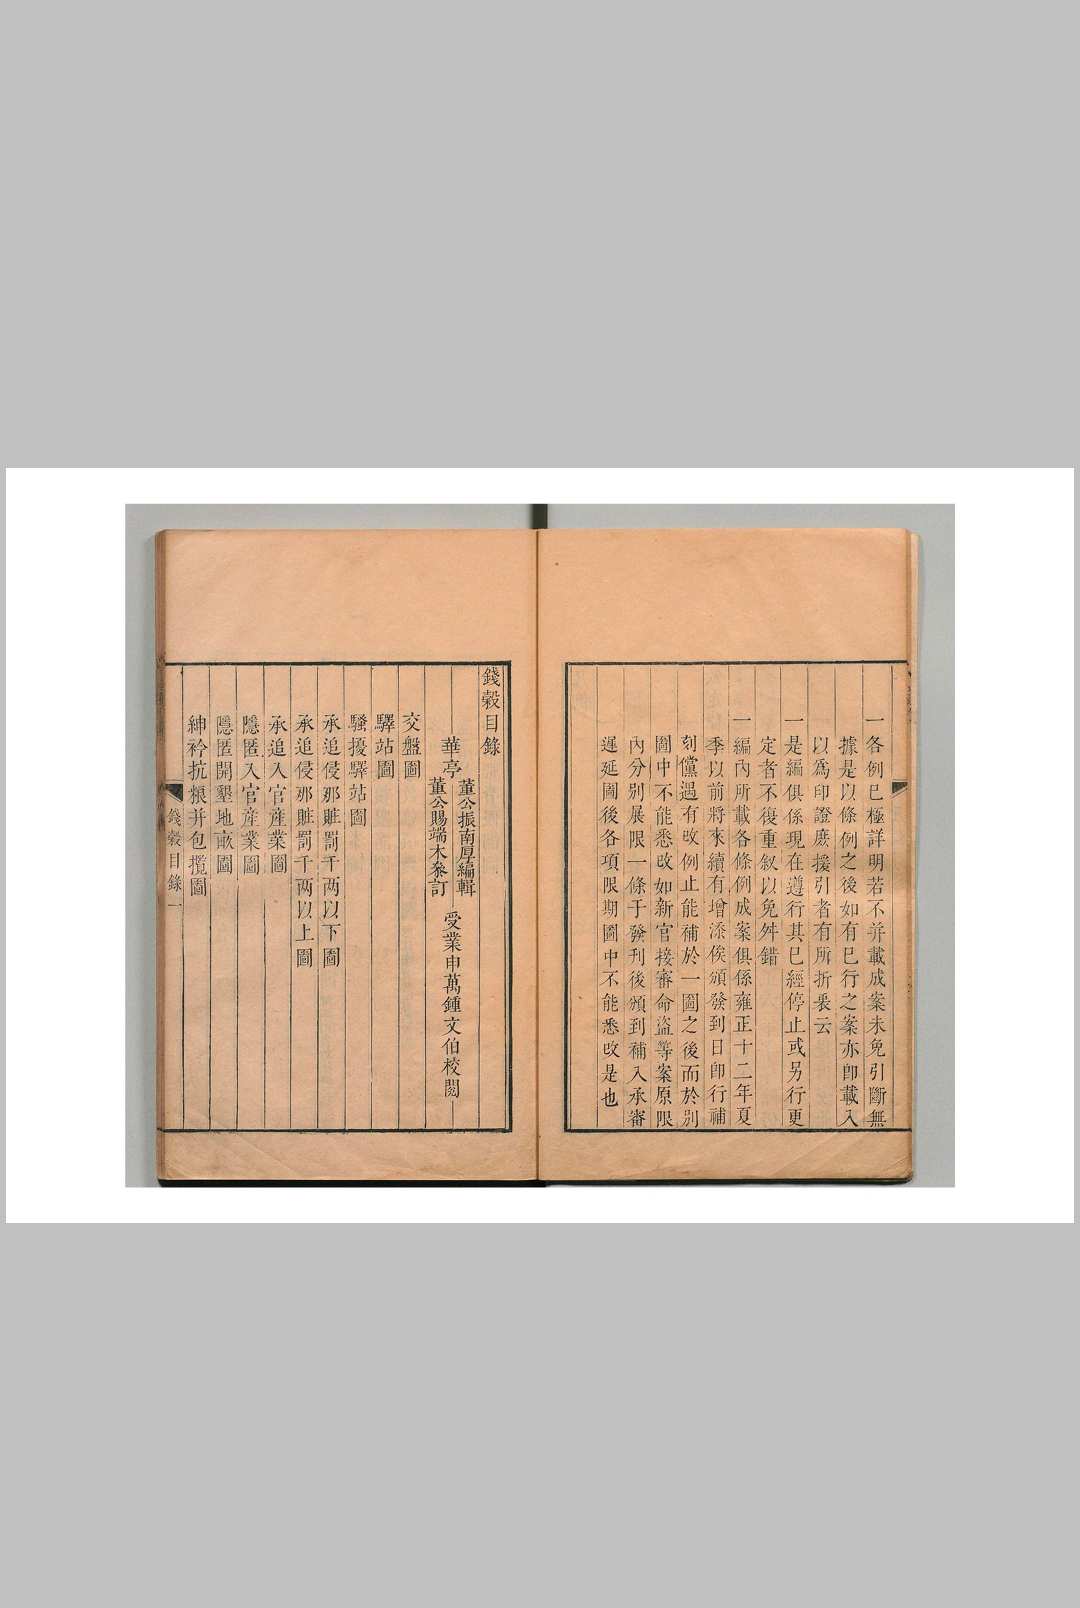 一各例已極詳明若不并載成案未免引斷無
據是以條例之後如有已行之案亦卽載入
以爲印證庶援引者有所折衷云
一是編俱係現在遵行其已經停止或另行更
定者不復重叙以免舛錯
一編內所載各條例成案俱係雍正十二年夏
季以前將來續有增添俟頒發到日卽行補
刻儻遇有改例止能補於一圖之後而於別
圖中不能悉改如新官接審命盜等案原限
內分別展限一條于發刊後頒到補入承審
遲延圖後各項限期圖中不能悉改是也
錢穀目錄
華亭 董公振南厚編輯
董公賜端木叅訂
受業申萬鍾文伯校閱
交盤圖
驛站圖
騷擾驛站圖
承追侵那贓罰千两以下圖
承追侵那贓罰千两以上圖
承追入官産業圖
隱匿入官産業圖
隱匿開墾地畝圖
紳衿抗粮并包攬圖
錢穀目錄 一